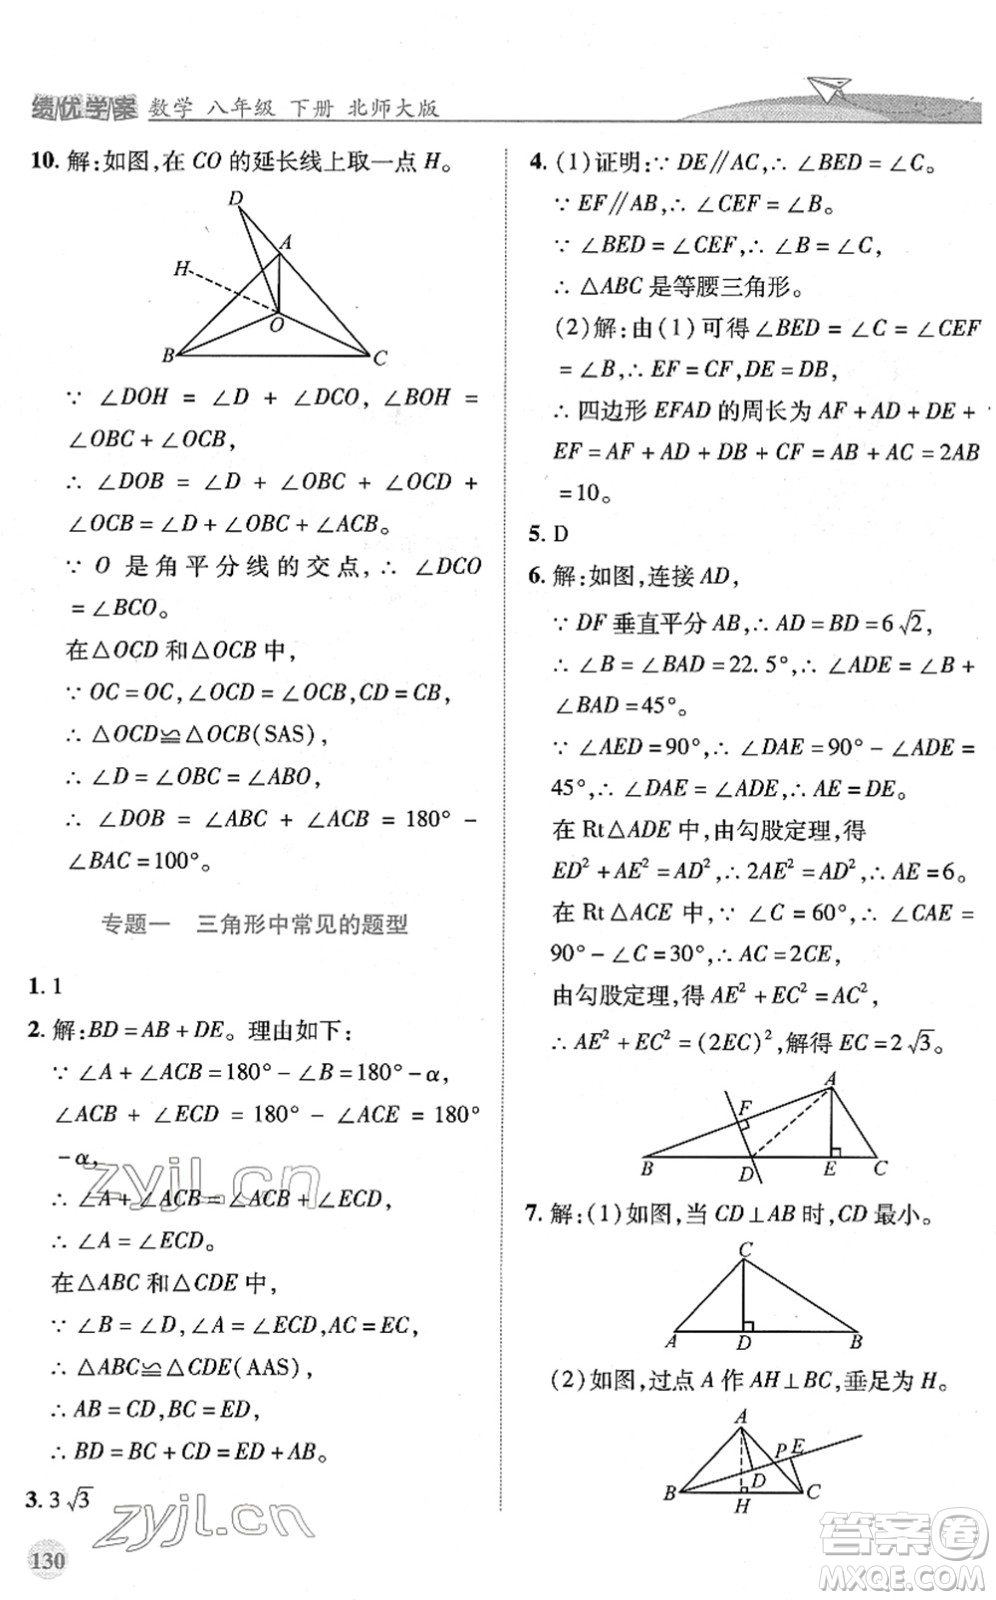 绩优学案 数学 八年级 下册 北师大版
10. 解:如图,在 CO 的延长线上取一点 H。
D
A
H
O
B
C
∵ ∠DOH = ∠D + ∠DCO, ∠BOH =
∠OBC + ∠OCB,
∴ ∠DOB = ∠D + ∠OBC + ∠OCD +
∠OCB = ∠D + ∠OBC + ∠ACB。
∵ O 是角平分线的交点,∴ ∠DCO
= ∠BCO。
在△OCD 和△OCB 中,
∵ OC = OC, ∠OCD = ∠OCB, CD = CB,
∴ △OCD≌△OCB(SAS),
∴ ∠D = ∠OBC = ∠ABO,
∴ ∠DOB = ∠ABC + ∠ACB = 180° -
∠BAC = 100°。
专题一 三角形中常见的题型
1. 1
2. 解:BD = AB + DE。理由如下:
∵ ∠A + ∠ACB = 180° - ∠B = 180° - α,
∠ACB + ∠ECD = 180° - ∠ACE = 180°
- α,
∴ ∠A + ∠ACB = ∠ACB + ∠ECD,
∴ ∠A = ∠ECD。
在△ABC 和△CDE 中,
∵ ∠B = ∠D, ∠A = ∠ECD, AC = EC,
∴ △ABC≌△CDE(AAS),
∴ AB = CD, BC = ED,
∴ BD = BC + CD = ED + AB。
3. 3√3
zyjl.cn
zyjl.cn
130
4. (1)证明:∵ DE∥AC,∴ ∠BED = ∠C。
∵ EF∥AB,∴ ∠CEF = ∠B。
∵ ∠BED = ∠CEF,∴ ∠B = ∠C,
∴ △ABC 是等腰三角形。
(2)解:由(1)可得∠BED = ∠C = ∠CEF
= ∠B,∴ EF = CF, DE = DB,
∴ 四边形 EFAD 的周长为 AF + AD + DE +
EF = AF + AD + DB + CF = AB + AC = 2AB
= 10。
5. D
6. 解:如图,连接 AD,
∵ DF 垂直平分 AB,∴ AD = BD = 6√2,
∴ ∠B = ∠BAD = 22.5°,∴ ∠ADE = ∠B +
∠BAD = 45°。
∵ ∠AED = 90°,∴ ∠DAE = 90° - ∠ADE =
45°,∴ ∠DAE = ∠ADE,∴ AE = DE。
在 Rt△ADE 中,由勾股定理,得
ED² + AE² = AD²,∴ 2AE² = AD²,∴ AE = 6。
在 Rt△ACE 中,∵ ∠C = 60°,∴ ∠CAE =
90° - ∠C = 30°,∴ AC = 2CE,
由勾股定理,得 AE² + EC² = AC²,
∴ AE² + EC² = (2EC)²,解得 EC = 2√3。
A
F
B
D
E
C
7. 解:(1)如图,当 CD⊥AB 时,CD 最小。
C
A
D
B
(2)如图,过点 A 作 AH⊥BC,垂足为 H。
A
P
E
D
B
H
C
答案圈
MXQE.COM